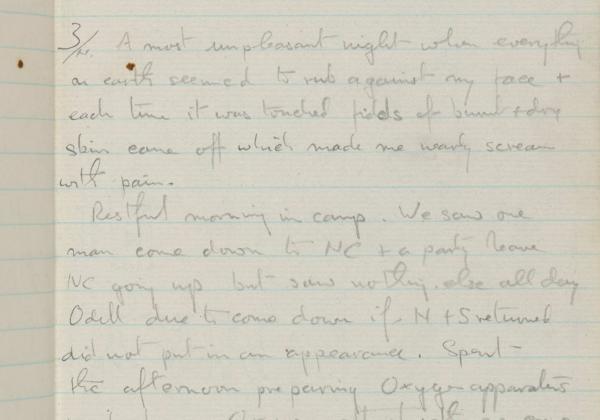 3/VI. A most unpleasant night when everything
on earth seemed to rub against my face +
each time it was touched fields of burnt + dry
skin came off which made me nearly scream
with pain.
Restful morning in camp. We saw one
man come down to NC + a party leave
NC going up but saw nothing else all day
Odell due to come down if N + S returned
did not put in an appearance. Spent
the afternoon preparing Oxygen apparatus